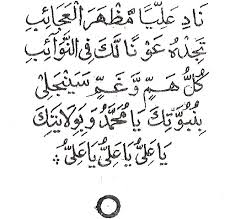 نَادِ عَلِيًّا مَّظْهَرَ الْعَجَائِبِ
تَجِدْهُ عَوْنًا لَّكَ فِي النَّوَائِبِ
كُلُّ هَمٍّ وَّغَمٍّ سَيَنْجَلِيْ
بِنُبُوَّتِكَ يَا مُحَمَّدُ وَبِوِلَايَتِكَ
يَا عَلِيُّ يَا عَلِيُّ يَا عَلِيُّ